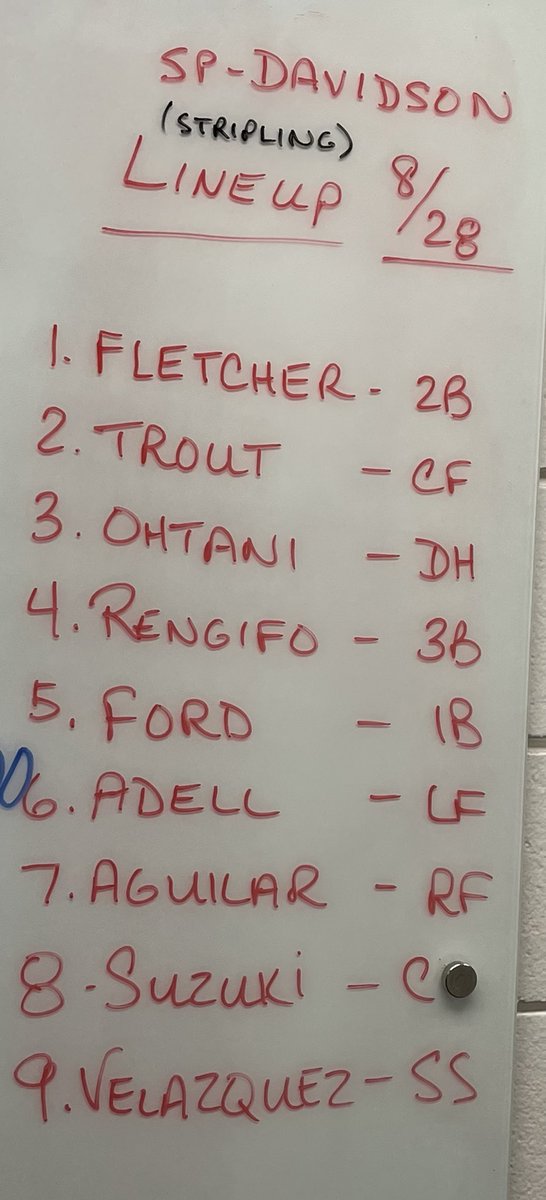 SP-DAVIDSON
(STRIPLING)
LINEUP 8/28
1. FLETCHER - 2B
2. TROUT - CF
3. OHTANI - DH
4. RENGIFO - 3B
5. FORD - 1B
6. ADELL - LF
7. AGUILAR - RF
8. SUZUKI - C
9. VELAZQUEZ - SS